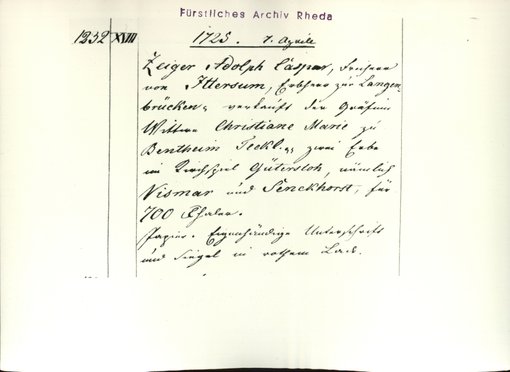 Fürstliches Archiv Rheda
1352 XVIII 1725. 7. Aprile
Zeiger Adolph Caspar, Freiherr
von Ittersum, Erbherr zur Langen-
brücken, verkauft der Gräfinn
Wittwe Christiane Marie zu
Bentheim Teckl. zwei Erbe
im Kirchspiel Gütersloh, nämlich
Vismar und Fenckhorst, für
700 Thaler.
Papier. Eigenhändige Unterschrift
und Siegel in rothem Lack.